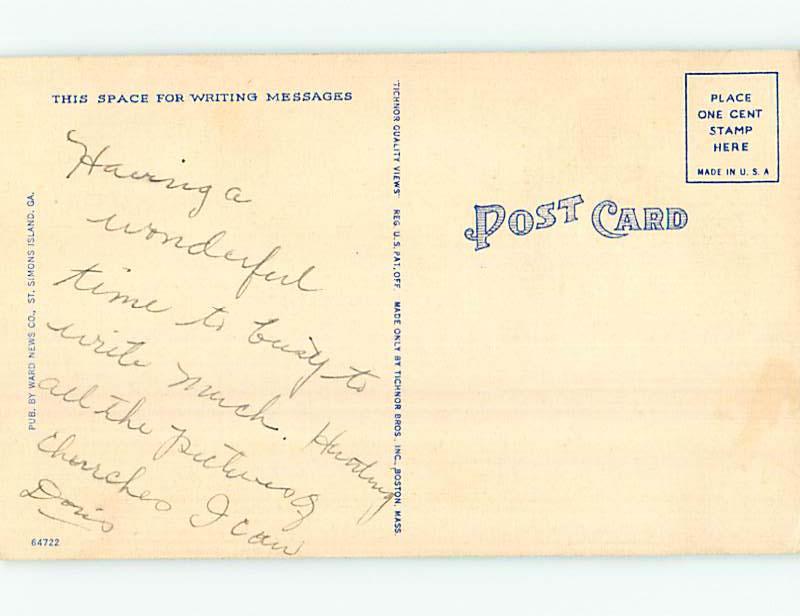 THIS SPACE FOR WRITING MESSAGES
Having a
wonderful
time to busy to
write much. Hunting
all the pictures of
churches I can
Doris
64722
PUB. BY WARD NEWS CO., ST. SIMONS ISLAND, GA.
"TICHNOR QUALITY VIEWS" REG. U.S. PAT. OFF. MADE ONLY BY TICHNOR BROS. INC., BOSTON, MASS.
POST CARD
PLACE
ONE CENT
STAMP
HERE
MADE IN U. S. A